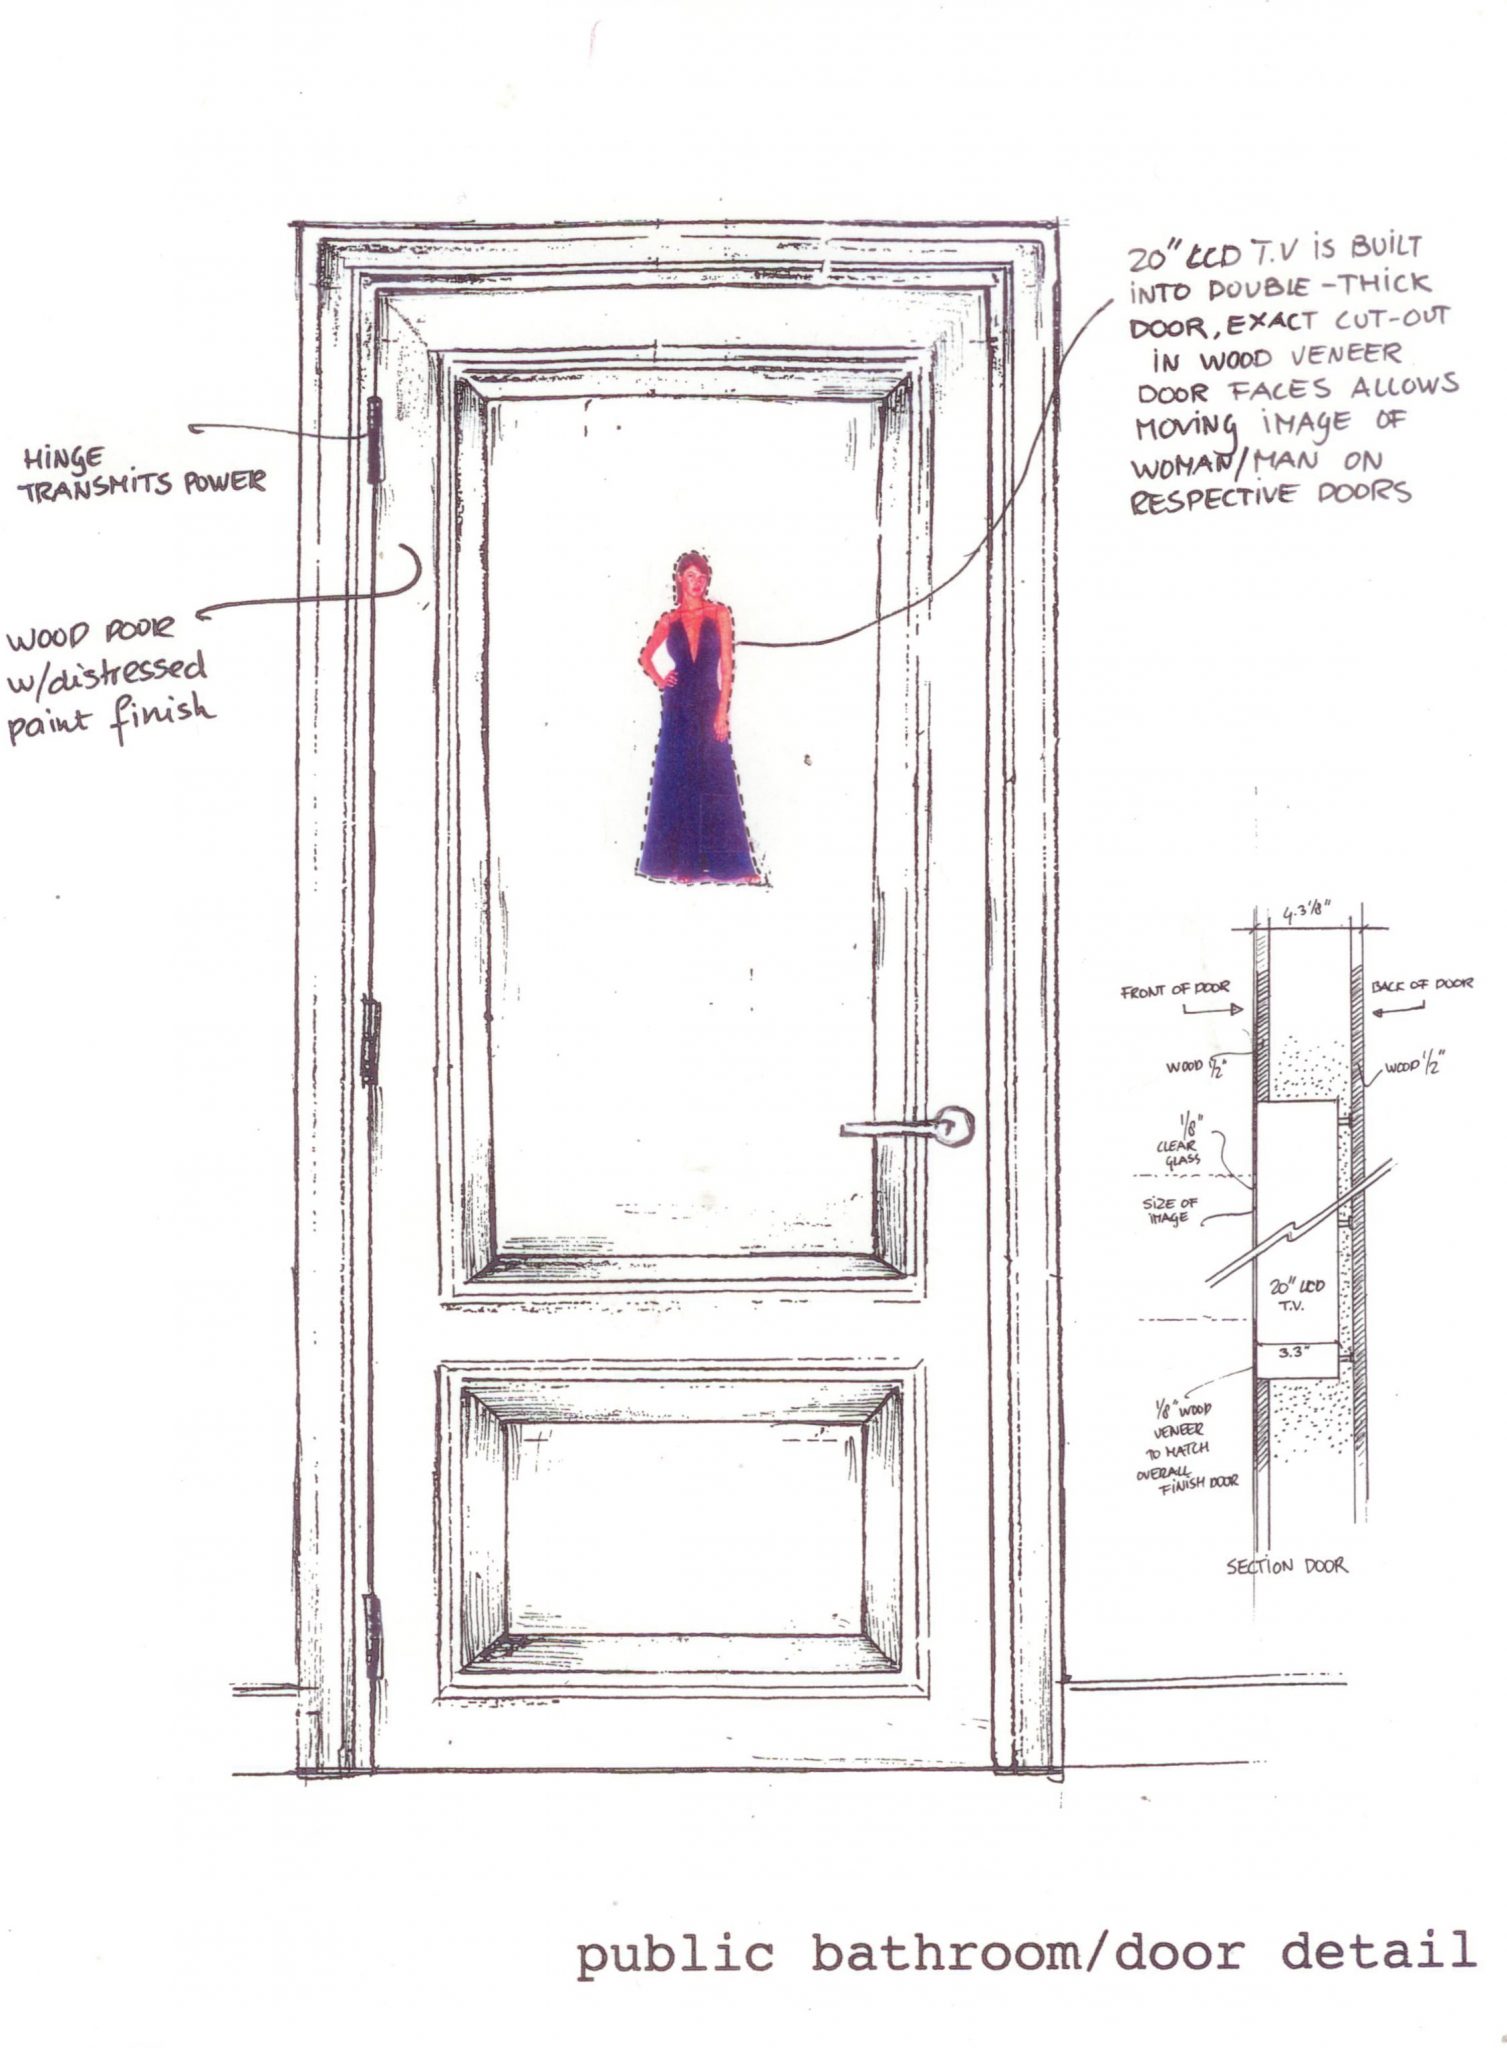 20" LCD T.V IS BUILT
INTO DOUBLE-THICK
DOOR, EXACT CUT-OUT
IN WOOD VENEER
DOOR FACES ALLOWS
MOVING IMAGE OF
WOMAN/MAN ON
RESPECTIVE DOORS
HINGE
TRANSMITS POWER
WOOD DOOR
w/distressed
paint finish
4.3 1/8"
FRONT OF DOOR
BACK OF DOOR
WOOD 1/2"
WOOD 1/2"
1/8"
CLEAR
GLASS
SIZE OF
IMAGE
20" LCD
T.V.
3.3"
1/8" WOOD
VENEER
TO MATCH
OVERALL
FINISH DOOR
SECTION DOOR
public bathroom/door detail